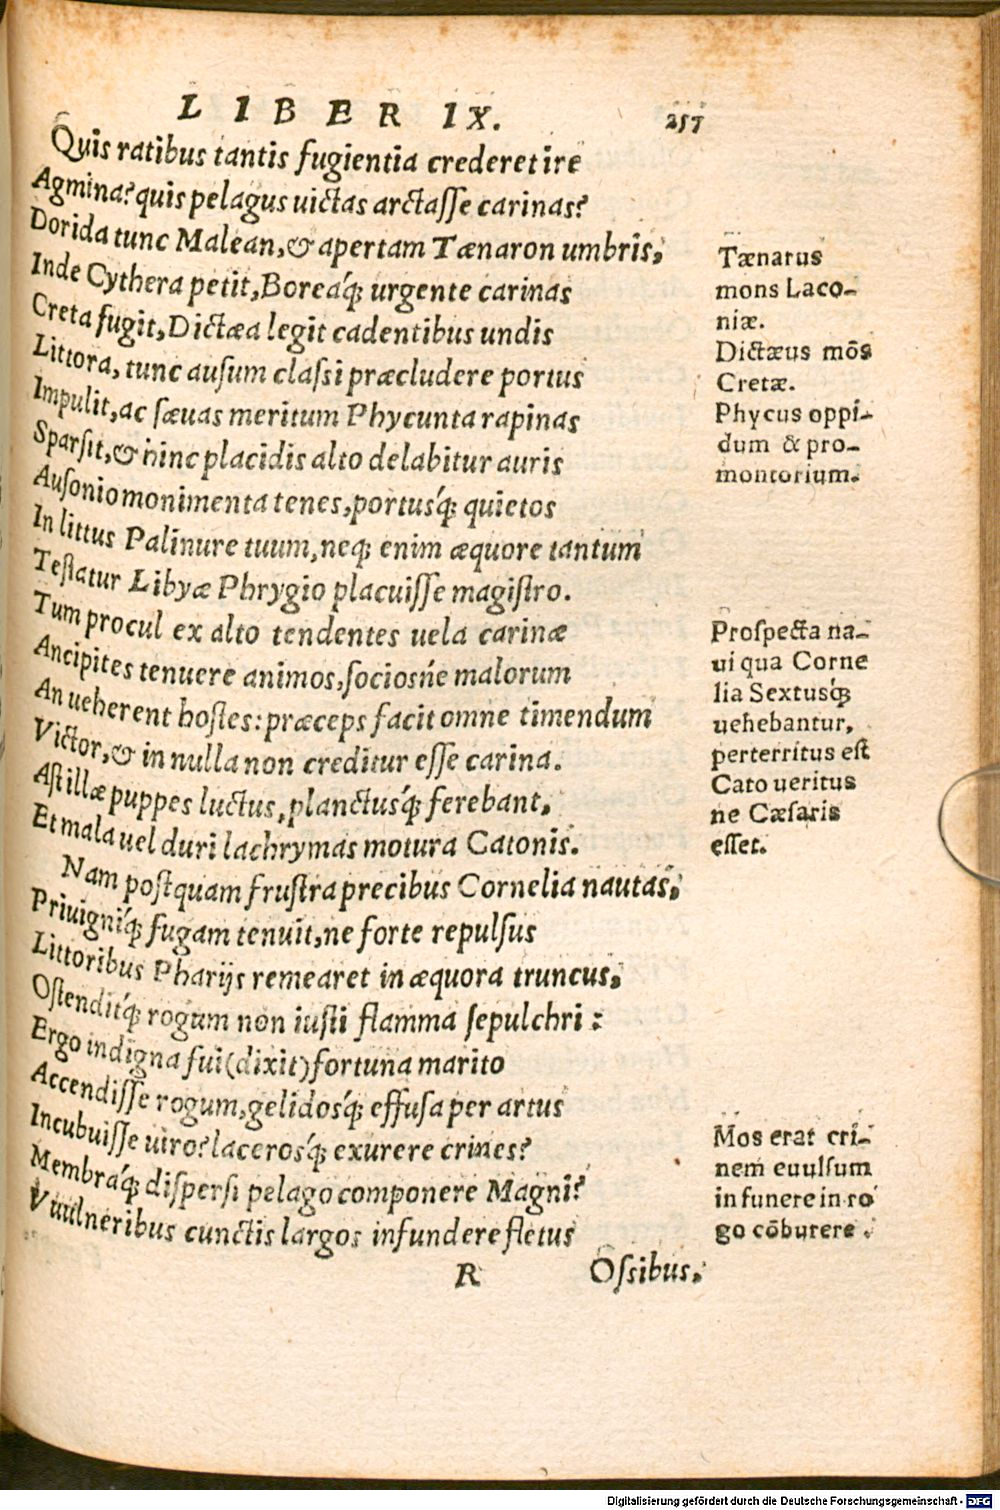 LIBER IX. 257
Quis ratibus tantis fugientia crederet ire
Agmina? quis pelagus uictas arctasse carinas?
Dorida tunc Malean, & apertam Tænaron umbris,
Inde Cythera petit, Boreaq́; urgente carinas
Creta fugit, Dictæa legit cadentibus undis
Littora, tunc ausum classi præcludere portus
Impulit, ac sæuas meritum Phycunta rapinas
Sparsit, & hinc placidis alto delabitur auris
Ausonio monimenta tenes, portusq́; quietos
In littus Palinure tuum, neq; enim æquore tantum
Testatur Libyæ Phrygio placuisse magistro.
Tum procul ex alto tendentes uela carinæ
Ancipites tenuere animos, sociosńe malorum
An ueherent hostes: præceps facit omne timendum
Victor, & in nulla non creditur esse carina.
Ast illæ puppes luctus, planctusq́; ferebant,
Et mala uel duri lachrymas motura Catonis.
Nam postquam frustra precibus Cornelia nautas,
Priuigniq́; fugam tenuit, ne forte repulsus
Littoribus Pharijs remearet in æquora truncus,
Ostenditq́; rogum non iusti flamma sepulchri:
Ergo indigna fui (dixit) fortuna marito
Accendisse rogum, gelidosq́; effusa per artus
Incubuisse uiro? lacerosq́; exurere crines?
Membraq́; dispersi pelago componere Magni?
Vuulneribus cunctis largos infundere fletus
R Ossibus,
Tænarus
mons Laco-
niæ.
Dictæus mõs
Cretæ.
Phycus oppi-
dum & pro-
montorium.
Prospecta na-
ui qua Corne
lia Sextusq́;
uehebantur,
perterritus est
Cato ueritus
ne Cæsaris
esset.
Mos erat cri-
nem euulsum
in funere in ro
go cõburere.
Digitalisierung gefördert durch die Deutsche Forschungsgemeinschaft - DFG